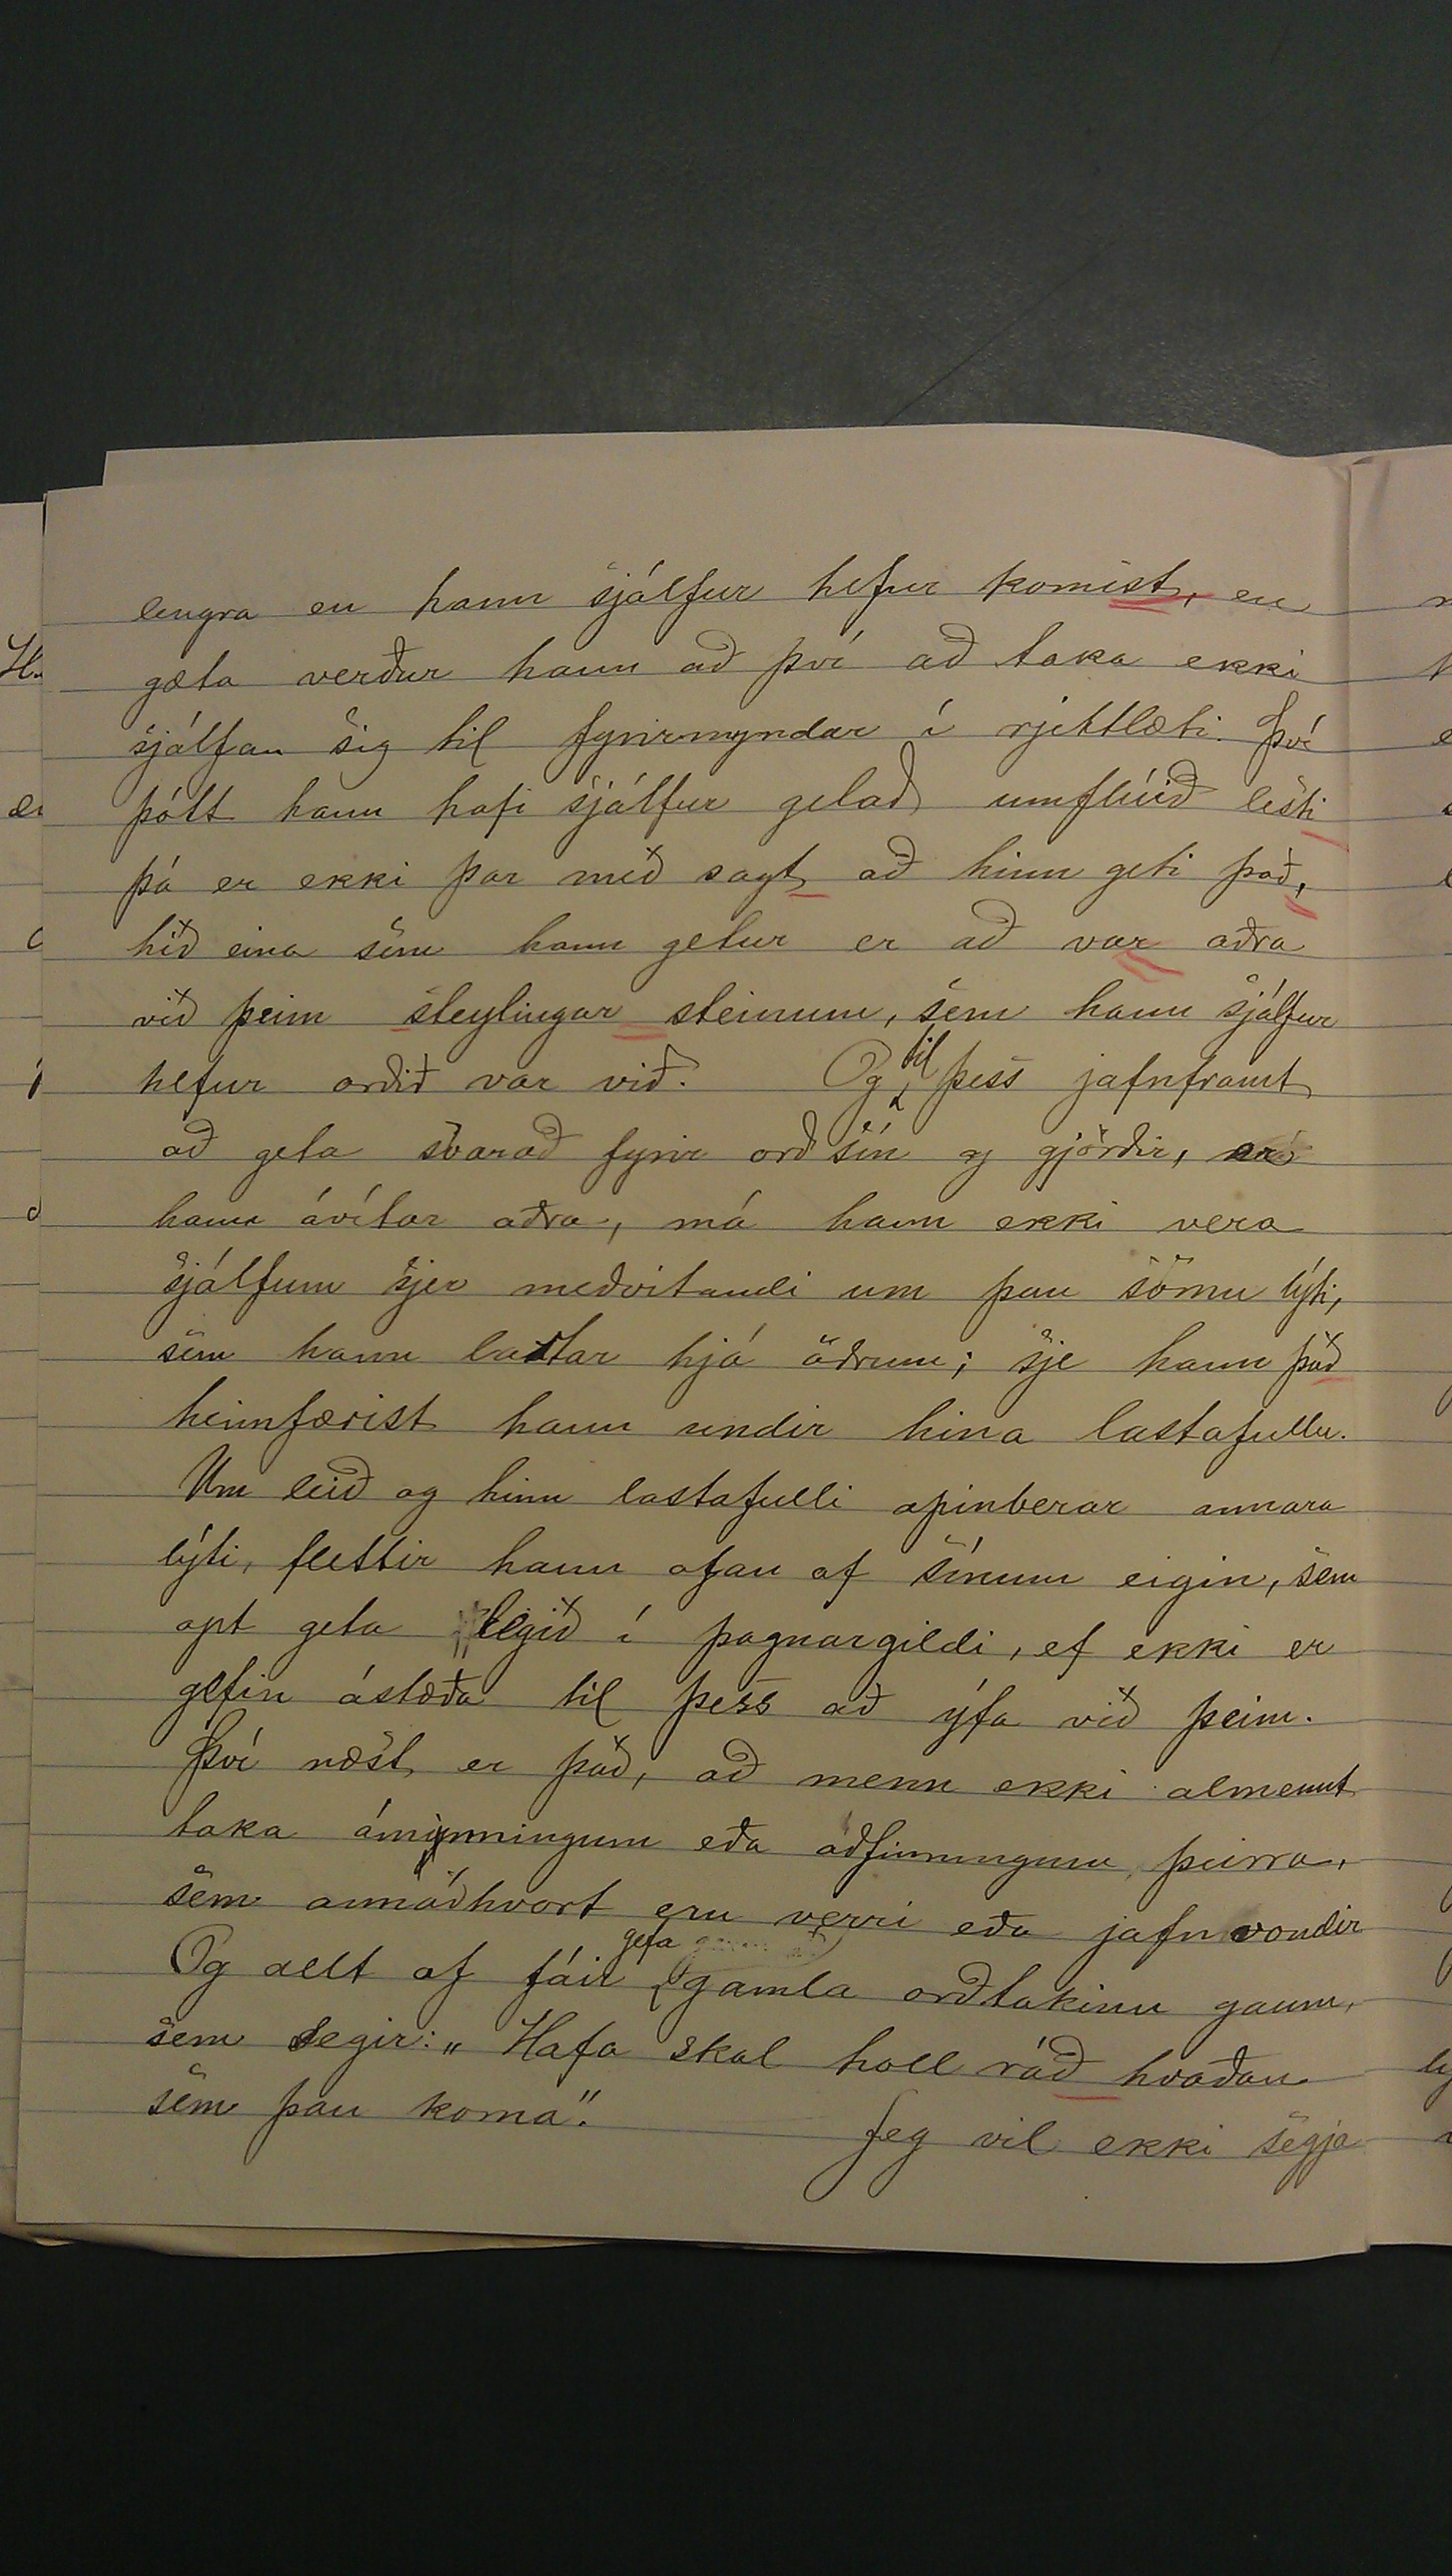 lengra en hann sjálfur hefur komist, en
gæta verður hann að því að taka ekki
sjálfan sig til fyrirmyndar í rjettlæti. Því
þótt hann hafi sjálfur getað umflúið lesti
þá er ekki þar með sagt að hinn geti það,
hið eina sem hann getur er að var aðra
við þeim steylingar steinum, sem hann sjálfur
hefur orðið var við. Og til þess jafnframt
að geta svarað fyrir orð sín og gjörðir, er
hann ávítar aðra, má hann ekki vera
sjálfum sjer meðvitandi um þau sömu lýti,
sem hann lastar hjá öðrum; sje hann það
heimfærist hann undir hina lastafullu.
Um leið og hinn lastafulli opinberar annara
lýti, flettir hann ofan af sínum eigin, sem
opt geta legið í þagnargildi, ef ekki er
gefin ástæða til þess að ýfa við þeim.
Því næst er það, að menn ekki almennt
taka áminningum eða aðfinningum þeirra,
sem annaðhvort eru verri eða jafn vondir
Og allt of fáir gefa gamla orðtakinu gaum,
sem segir: „Hafa skal holl ráð hvaðan
sem þau koma".
Jeg vil ekki segja